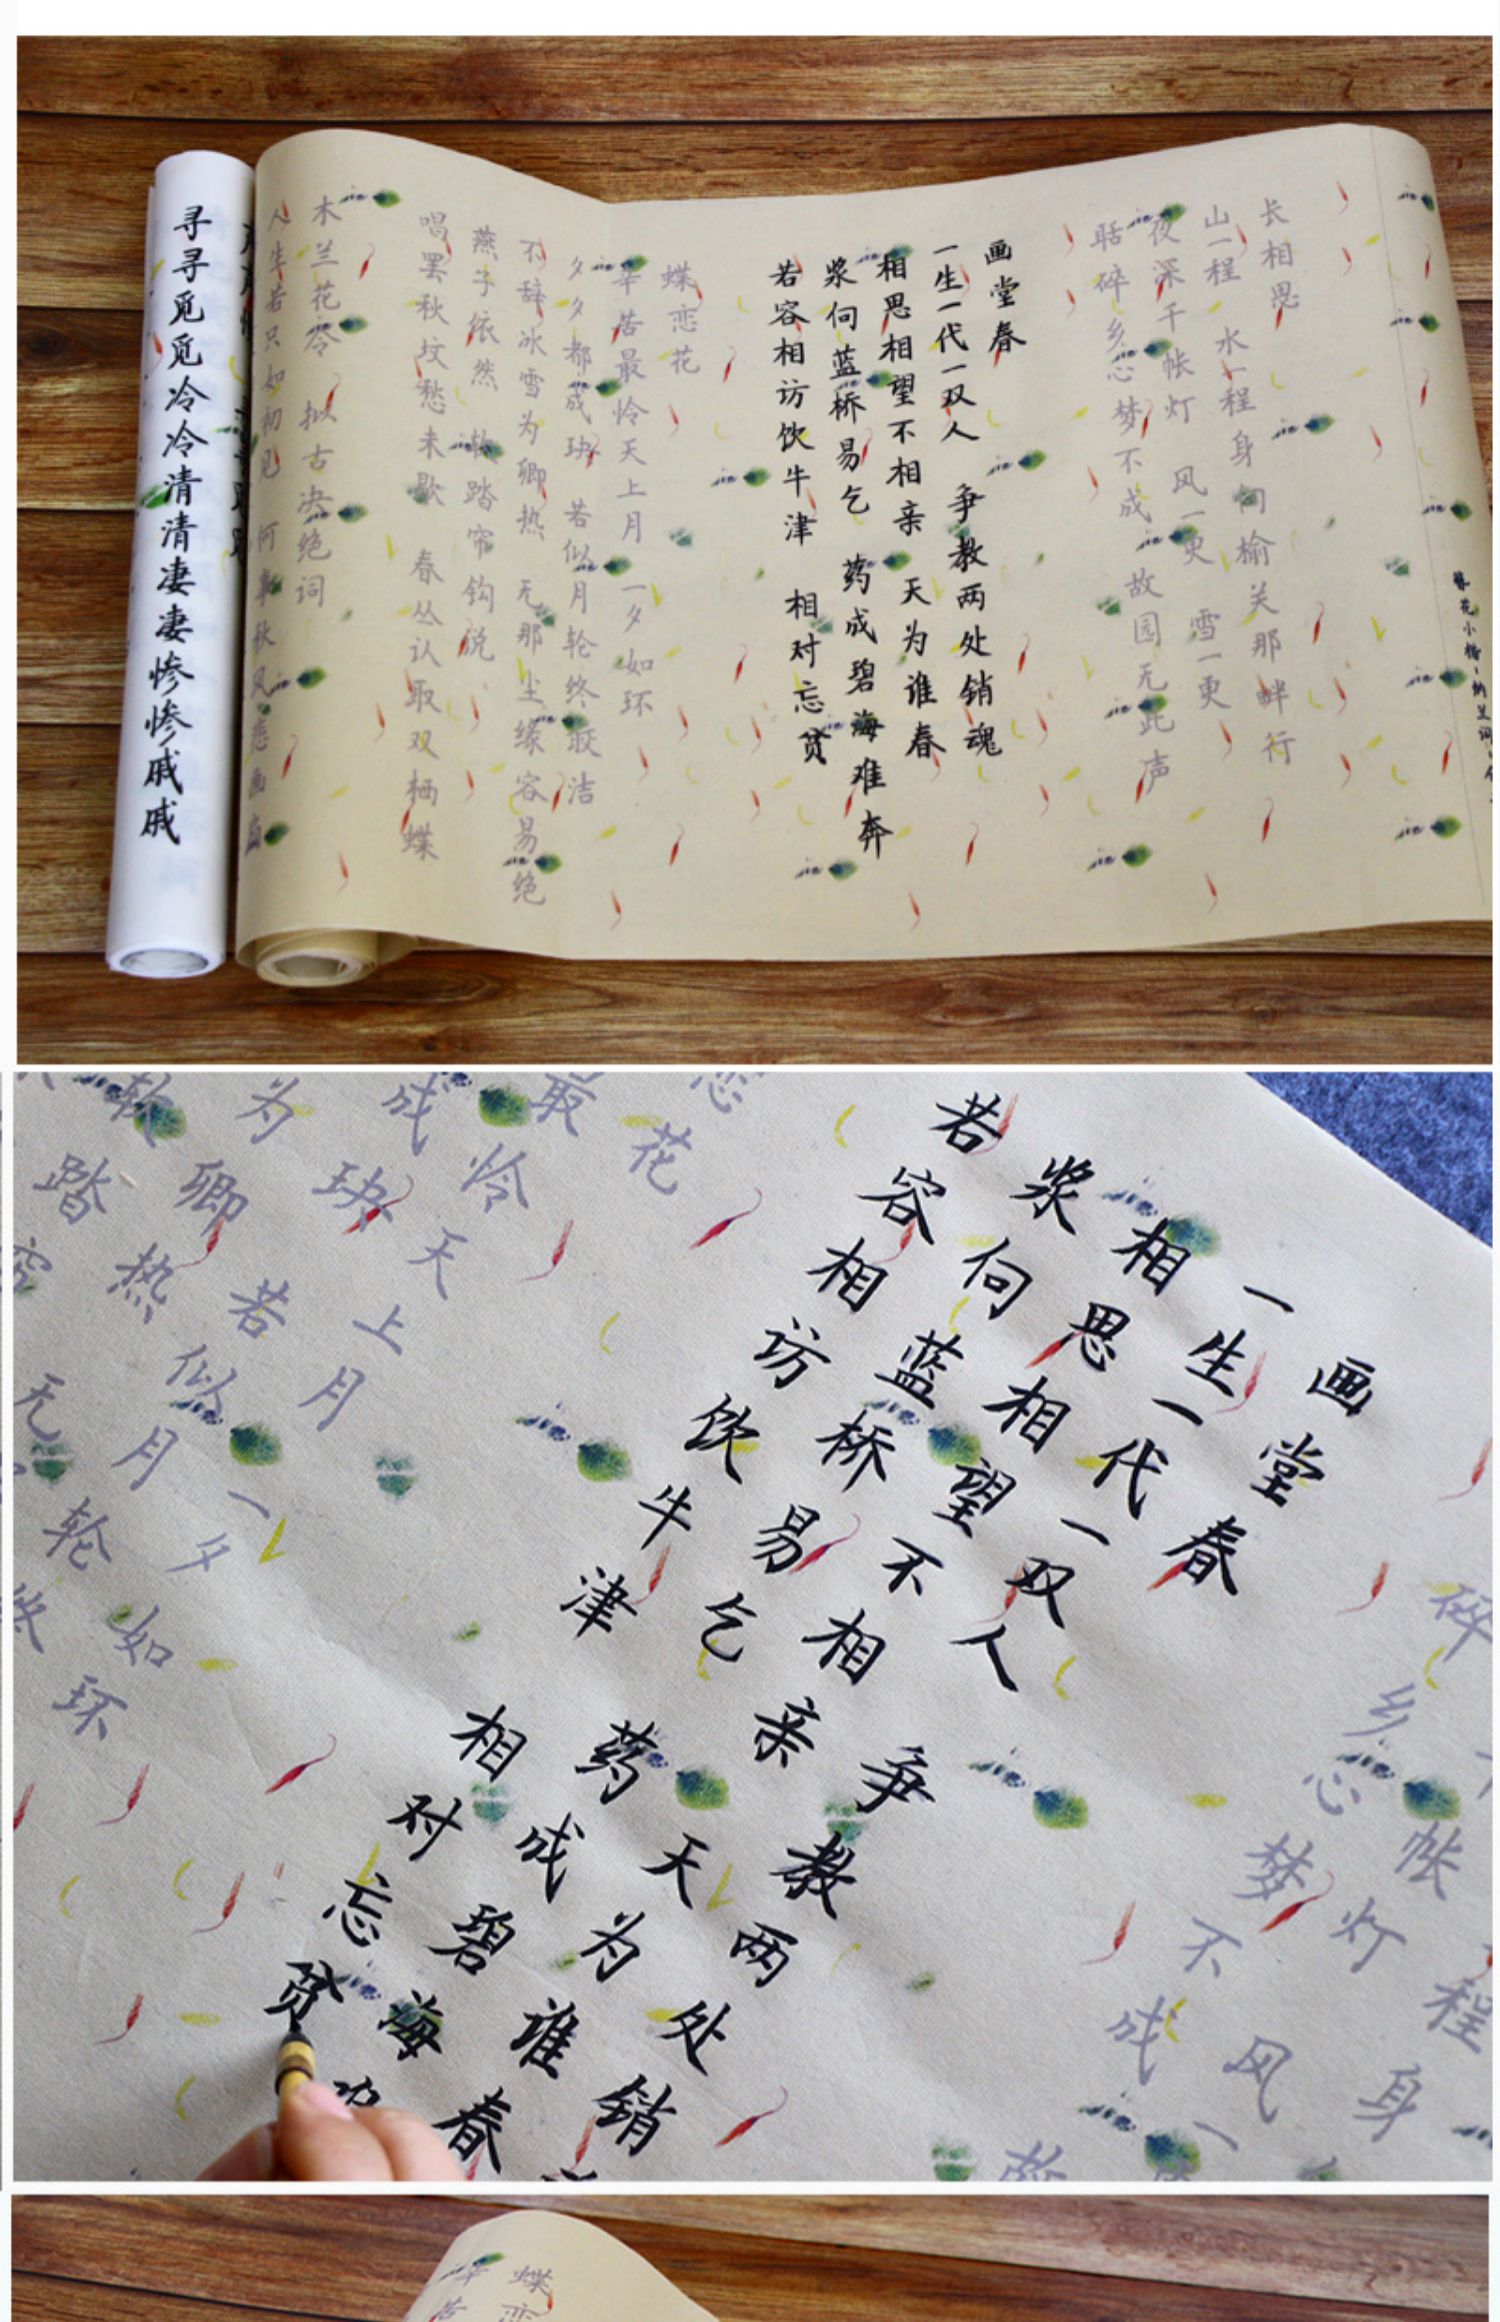 花小楷、纳兰词
长相思
山一程 水一程 身向榆关那畔行
夜深千帐灯 风一更 雪一更
聒碎乡心梦不成 故园无此声
画堂春
一生一代一双人 争教两处销魂
相思相望不相亲 天为谁春
浆向蓝桥易乞 药成碧海难奔
若容相访饮牛津 相对忘贫
蝶恋花
辛苦最怜天上月 一夕如环
夕夕都成玦 若似月轮终皎洁
不辞冰雪为卿热 无那尘缘容易绝
燕子依然 软踏帘钩说
唱罢秋坟愁未歇 春丛认取双栖蝶
木兰花令 拟古决绝词
人生若只如初见 何事秋风悲画扇
寻寻觅觅冷冷清清凄凄惨惨戚戚
程 身
帐灯 风一
碎乡心梦不成 故
画堂春
一生一代一双人 争教两处销
相思相望不相亲 天为谁春
浆向蓝桥易乞 药成碧海
若容相访饮牛津 相对忘贫
恋花
最怜天上月 一夕如环
成玦 若似月轮终
为卿热 无
软踏帘
蝶恋
辛苦